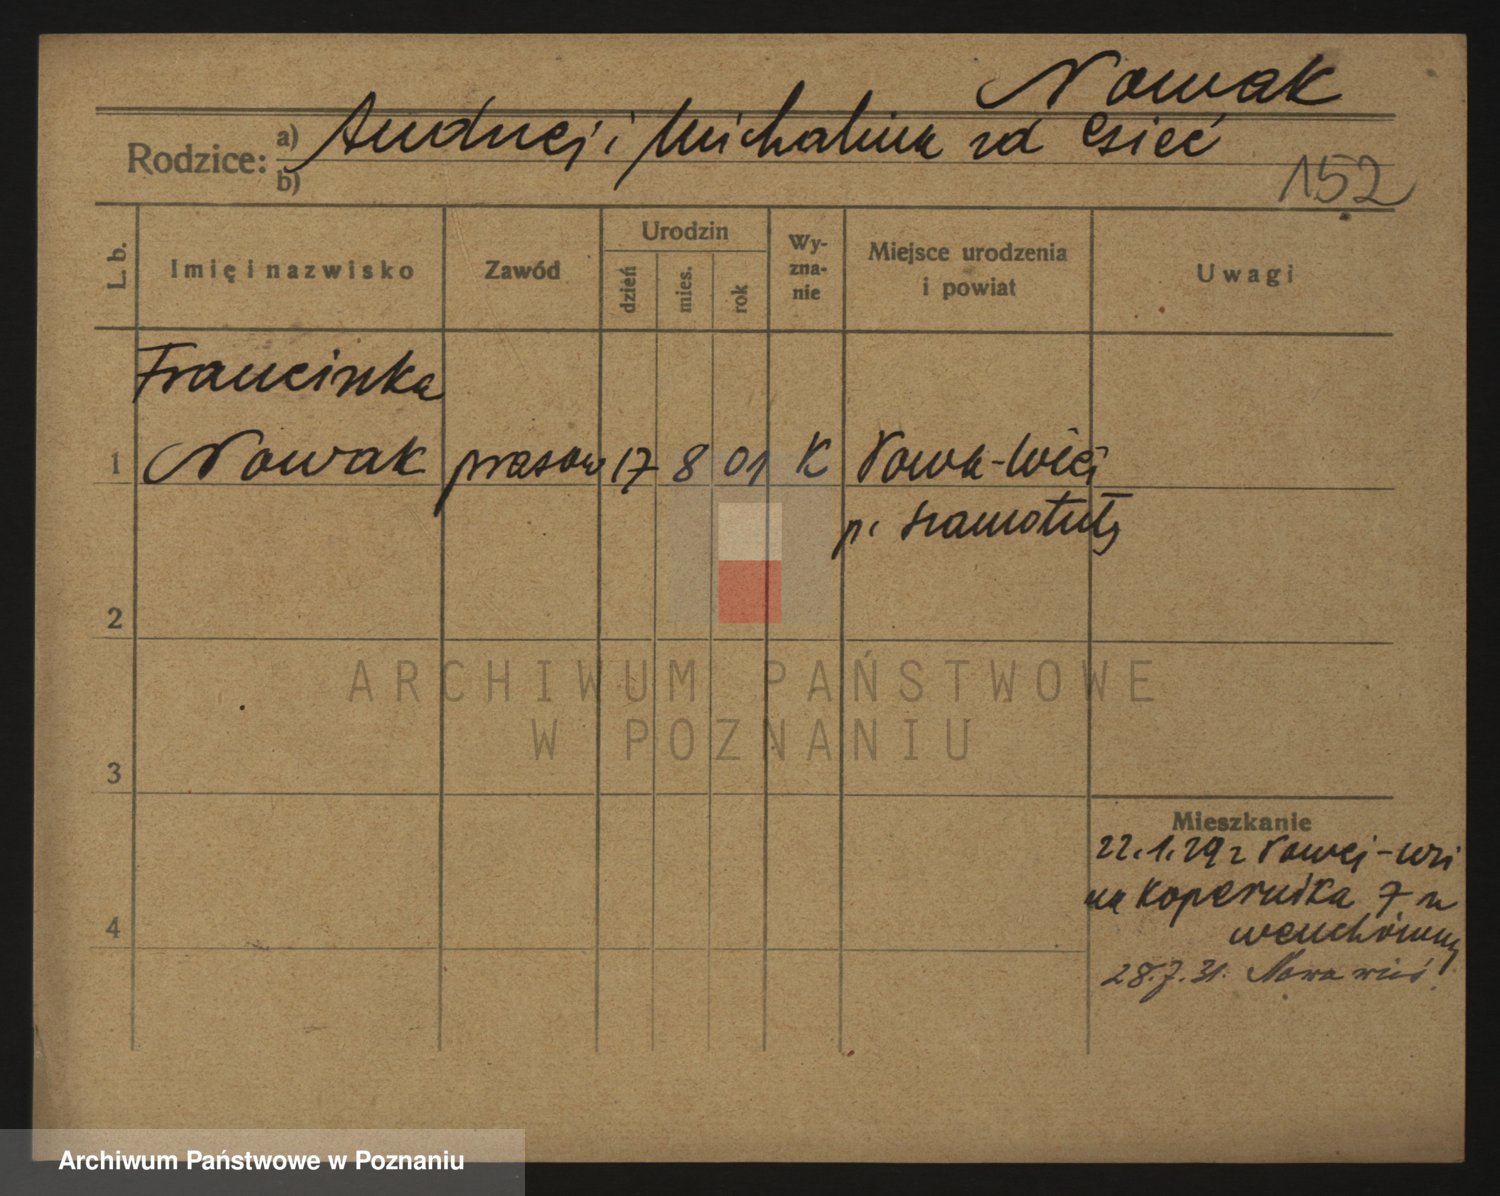 Nowak
Rodzice: a) Andrzej i Michalina zd Csieć
b)
152
L. b.
Imię i nazwisko
Zawód
Urodzin
dzień
mies.
rok
Wy-
zna-
nie
Miejsce urodzenia
i powiat
Uwagi
Franciszka
1 Nowak prasow 17 8 01 K Nowa-Wieś
p. Szamotuły
2
ARCHIWUM PAŃSTWOWE
W POZNANIU
3
Mieszkanie
22.1.29 z Nowej-wsi
na Kopernika 7 u
4
28.7.31. Nowa wieś
Archiwum Państwowe w Poznaniu